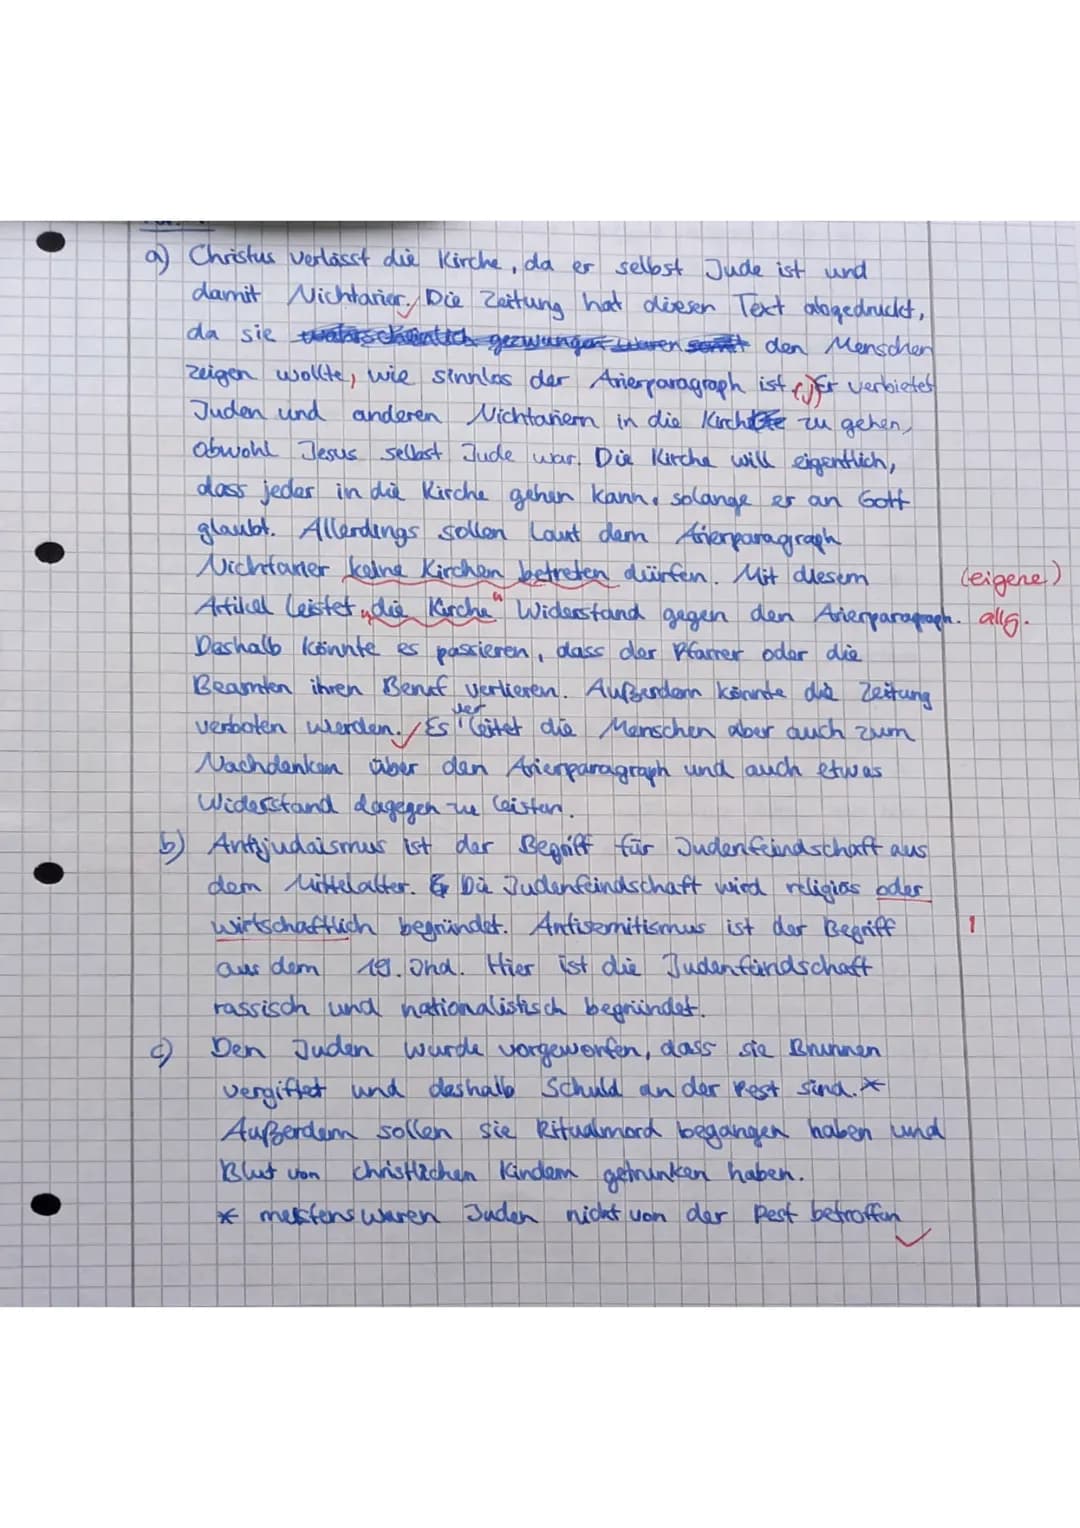 a) Christus verlässt die Kirche, da er selbst Jude ist und
damit Nichtarier. Die Zeitung hat diesen Text abgedruckt,
da sie den Menschen
zeigen wollte, wie sinnlos der Arierparagraph ist (.) Er verbietet
Juden und anderen Nichtariern in die Kirche zu gehen,
obwohl Jesus selbst Jude war. Die Kirche will eigentlich,
dass jeder in die Kirche gehen kann, solange er an Gott
glaubt. Allerdings sollen laut dem Arierparagraph
Nichtarier keine Kirchen betreten dürfen. Mit diesem (eigene)
Artikel leistet „die Kirche" Widerstand gegen den Arierparagraph. allg.
Deshalb könnte es passieren, dass der Pfarrer oder die
Beamten ihren Beruf verlieren. Außerdem könnte die Zeitung
verboten werden. Es verleitet die Menschen aber auch zum
Nachdenken über den Arierparagraph und auch etwas
Widerstand dagegen zu leisten.
b) Antijudaismus ist der Begriff für Judenfeindschaft aus
dem Mittelalter. Die Judenfeindschaft wird religiös oder
wirtschaftlich begründet. Antisemitismus ist der Begriff !
aus dem 19. Jhd. Hier ist die Judenfeindschaft
rassisch und nationalistisch begründet.
c) Den Juden wurde vorgeworfen, dass sie Brunnen
vergiftet und deshalb Schuld an der Pest sind. *
Außerdem sollen sie Ritualmord begangen haben und
Blut von christlichen Kindern getrunken haben.
* meistens waren Juden nicht von der Pest betroffen